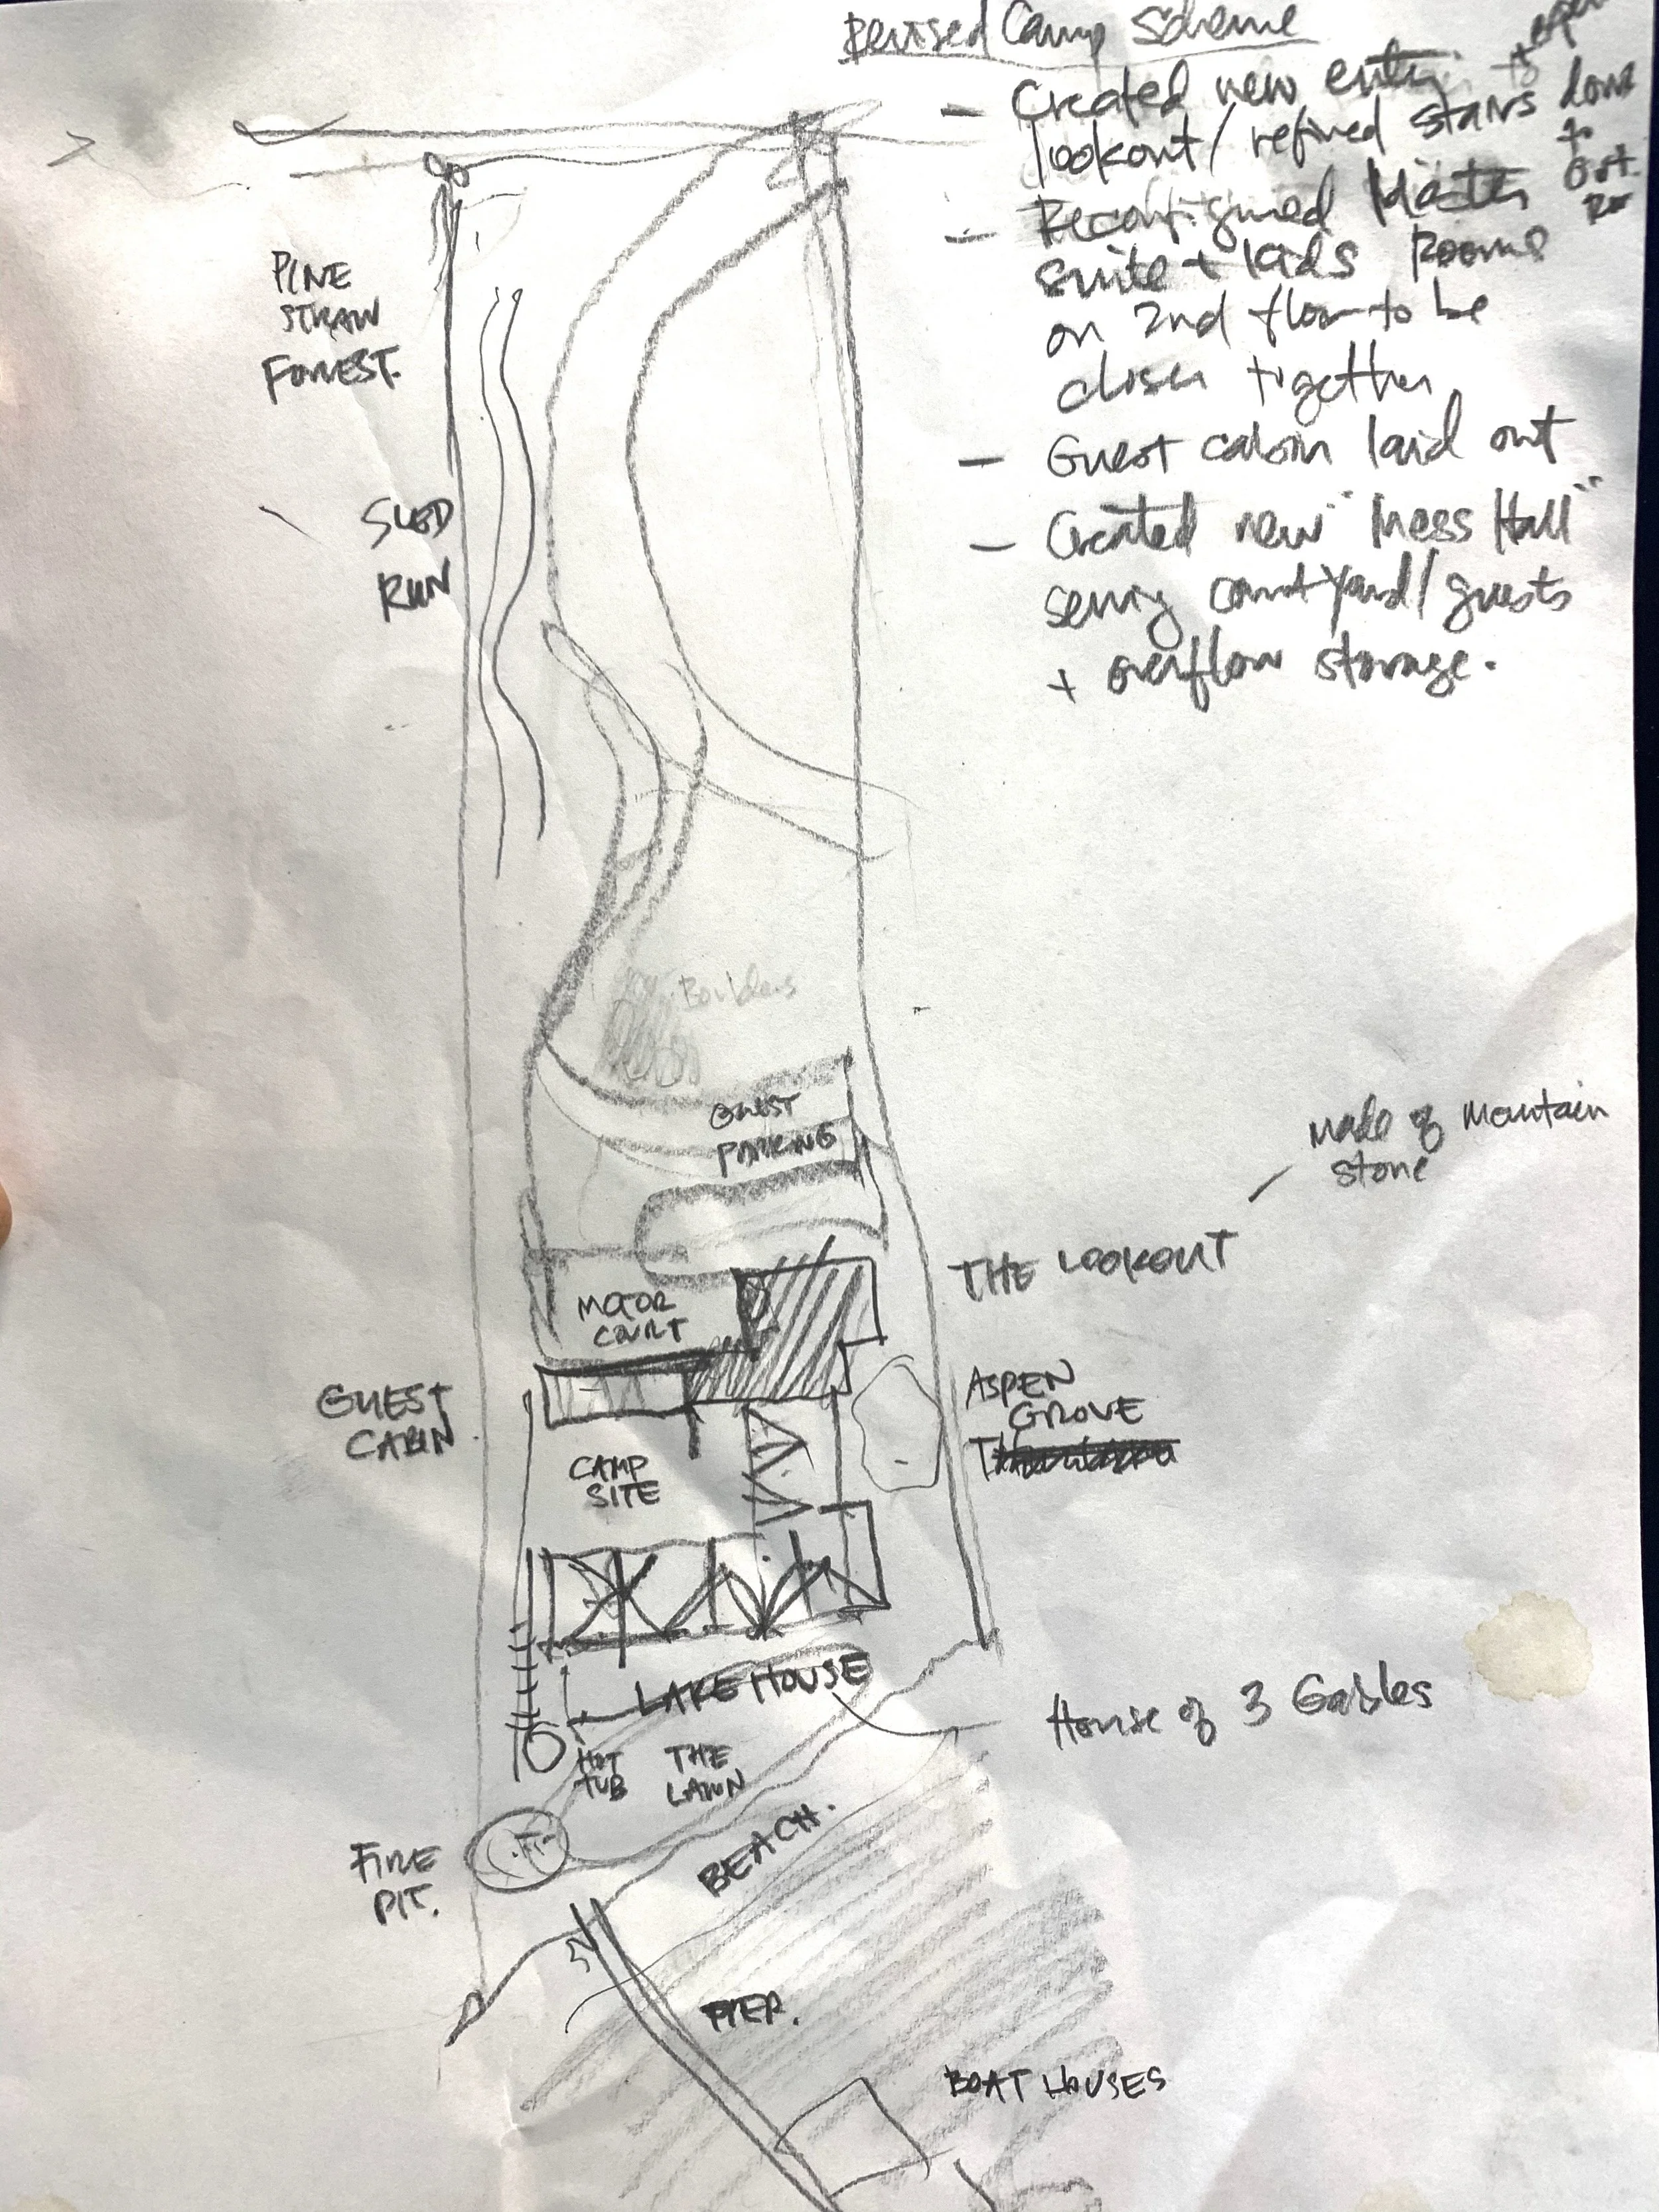 Revised Camp Scheme
- Created new entry to
lookout / refined stairs
- Reconfigured Master
Suite + Kids Rooms
on 2nd floor to be
closer together
- Guest cabin laid out
- Created new "Mess Hall"
serving courtyard / guests
+ overflow storage.
PINE
STRAW
FORREST.
SLED
RUN
Boulders
GUEST
PARKING
Made of Mountain
Stone
THE LOOKOUT
MOTOR
COURT
GUEST
CABIN
ASPEN
GROVE
CAMP
SITE
LAKE HOUSE
House of 3 Gables
HOT
TUB
THE
LAWN
BEACH.
FIRE
PIT.
PIER.
BOAT HOUSES